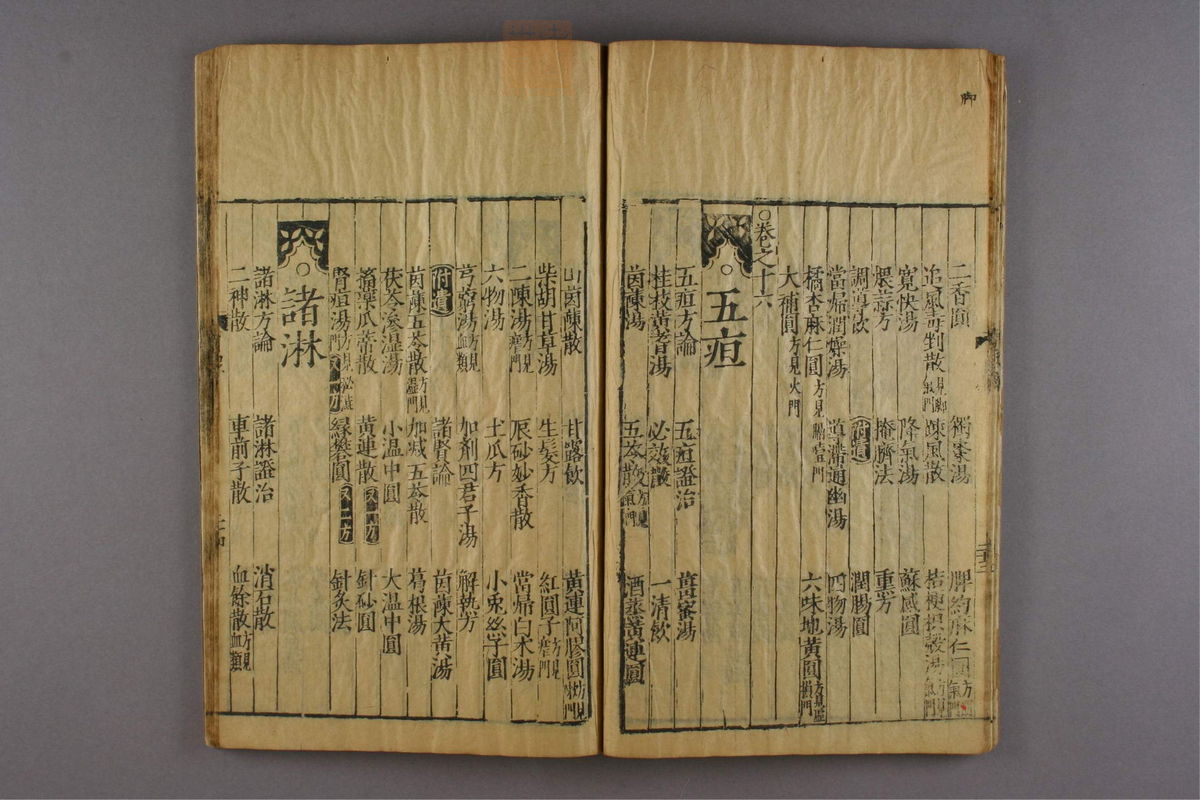 脚
二香圓 衝峯湯 脾約麻仁圓方見氣門
追風毒剉散見脚氣門 疎風散 桔梗枳殼湯方見氣門
寬快湯 降氣湯 蘇感圓
煨蒜方 掩臍法 重方
調導飲 附遺 潤腸圓
當歸潤燥湯 導滯通幽湯 四物湯
橘杏麻仁圓方見 六味地黃圓方見虛損門
大補圓方見火門
○卷之十六
○五疸
五疸方論 五疸證治 薑蜜湯
桂枝黃耆湯 必效散 一清飲
茵蔯湯 五苓散 酒蒸黃連圓
山茵蔯散 甘露飲 黃連阿膠圓方見痢門
柴胡甘草湯 生髮方 紅圓子方見瘧門
二陳湯方見瘧門 辰砂妙香散 當歸白术湯
六物湯 土瓜方 小兔絲子圓
芎藭湯方見血類 加劑四君子湯 解熱方
附遺 諸賢論 茵蔯大黃湯
茵蔯五苓散方見濕門 加減五苓散 葛根湯
茯苓滲濕湯 小溫中圓 大溫中圓
搐藥瓜蒂散 黃連散又一方 針砂圓
腎疸湯 綠礬圓又二方 針灸法
○諸淋
諸淋方論 諸淋證治 消石散
二神散 車前子散 血餘散方見血類